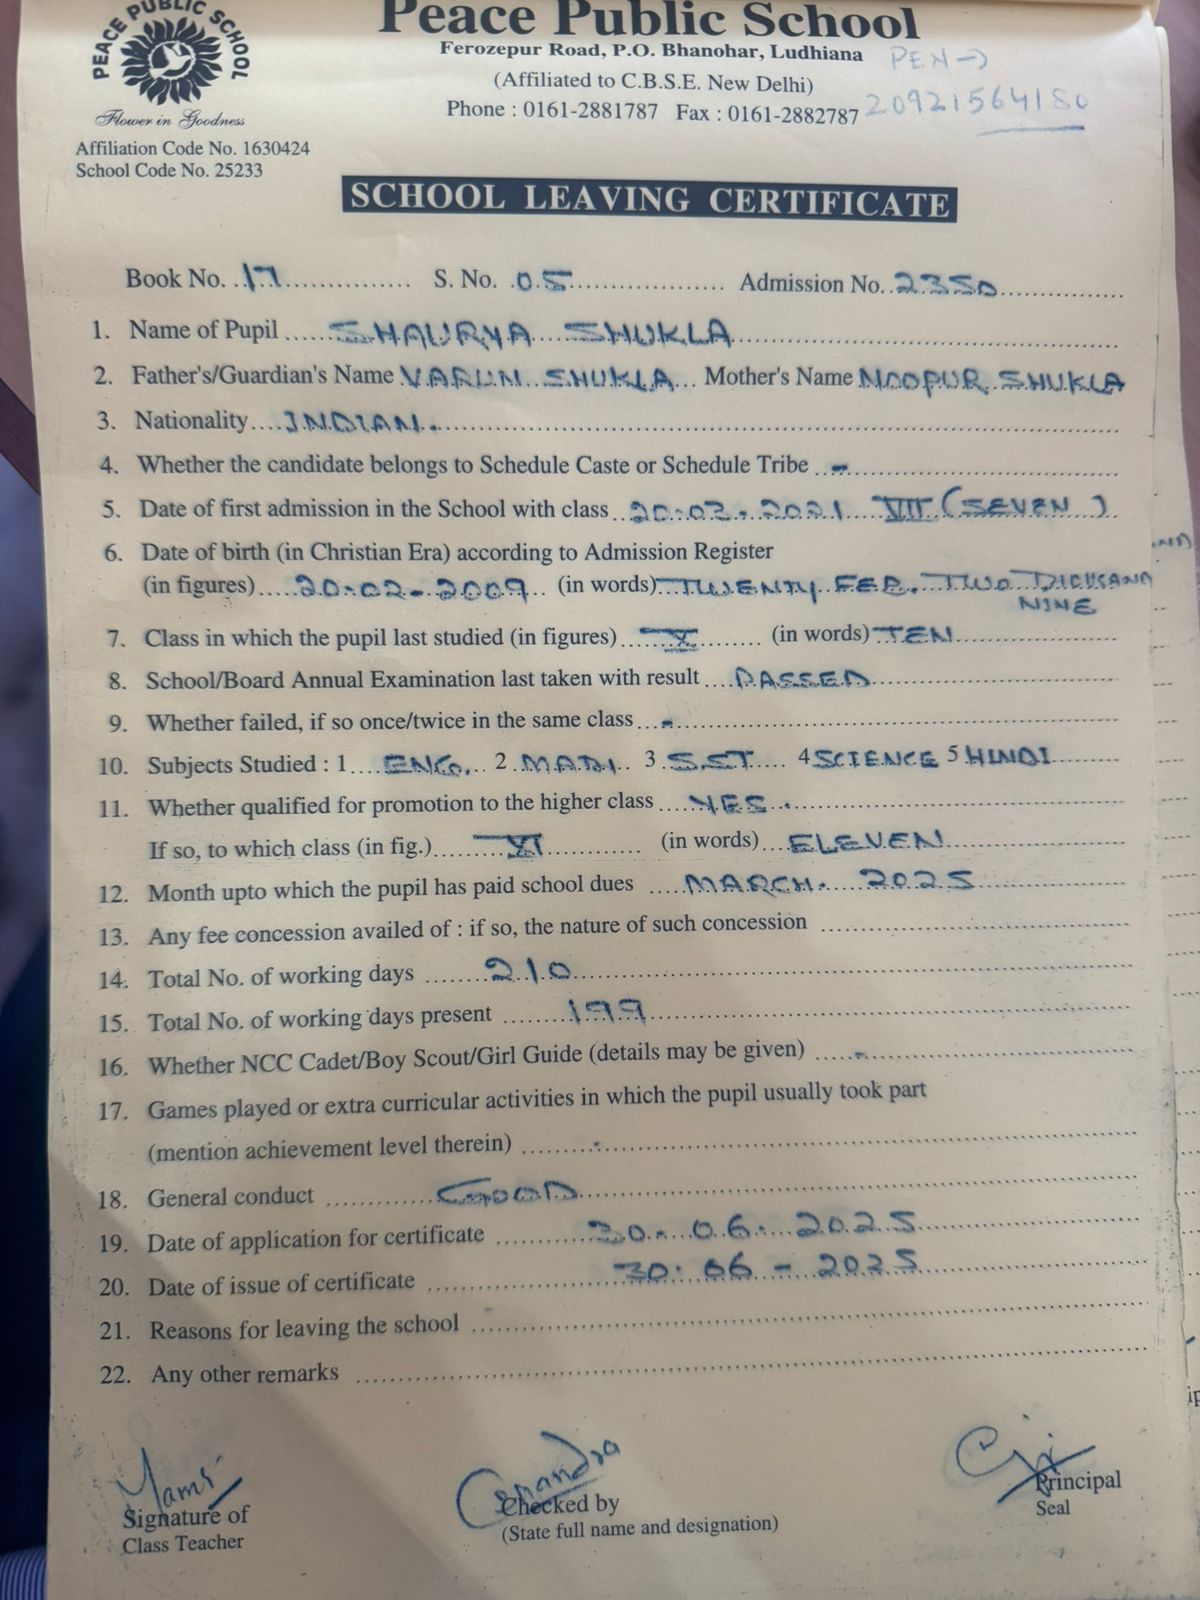 PEACE PUBLIC SCHOOL
Flower in Goodness
Peace Public School
Ferozepur Road, P.O. Bhanohar, Ludhiana
(Affiliated to C.B.S.E. New Delhi)
Phone : 0161-2881787 Fax : 0161-2882787
PEN →
20921564180
Affiliation Code No. 1630424
School Code No. 25233
SCHOOL LEAVING CERTIFICATE
Book No. 17 S. No. 05 Admission No. 2350
1. Name of Pupil SHAURYA SHUKLA
2. Father's/Guardian's Name VARUN SHUKLA Mother's Name NOOPUR SHUKLA
3. Nationality INDIAN.
4. Whether the candidate belongs to Schedule Caste or Schedule Tribe -
5. Date of first admission in the School with class 20.03.2021 VII (SEVEN)
6. Date of birth (in Christian Era) according to Admission Register
(in figures) 20-02-2009 (in words) TWENTY FEB. TWO THOUSAND
NINE
7. Class in which the pupil last studied (in figures) X (in words) TEN
8. School/Board Annual Examination last taken with result PASSED
9. Whether failed, if so once/twice in the same class -
10. Subjects Studied : 1 ENG. 2 MATH 3 S.ST 4 SCIENCE 5 HINDI
11. Whether qualified for promotion to the higher class YES.
If so, to which class (in fig.) XI (in words) ELEVEN
12. Month upto which the pupil has paid school dues MARCH. 2025
13. Any fee concession availed of : if so, the nature of such concession
14. Total No. of working days 210
15. Total No. of working days present 199
16. Whether NCC Cadet/Boy Scout/Girl Guide (details may be given) -
17. Games played or extra curricular activities in which the pupil usually took part
(mention achievement level therein) -
18. General conduct GOOD
19. Date of application for certificate 30.06.2025
20. Date of issue of certificate 30.06-2025
21. Reasons for leaving the school
22. Any other remarks
Signature of
Class Teacher
Checked by
(State full name and designation)
Principal
Seal